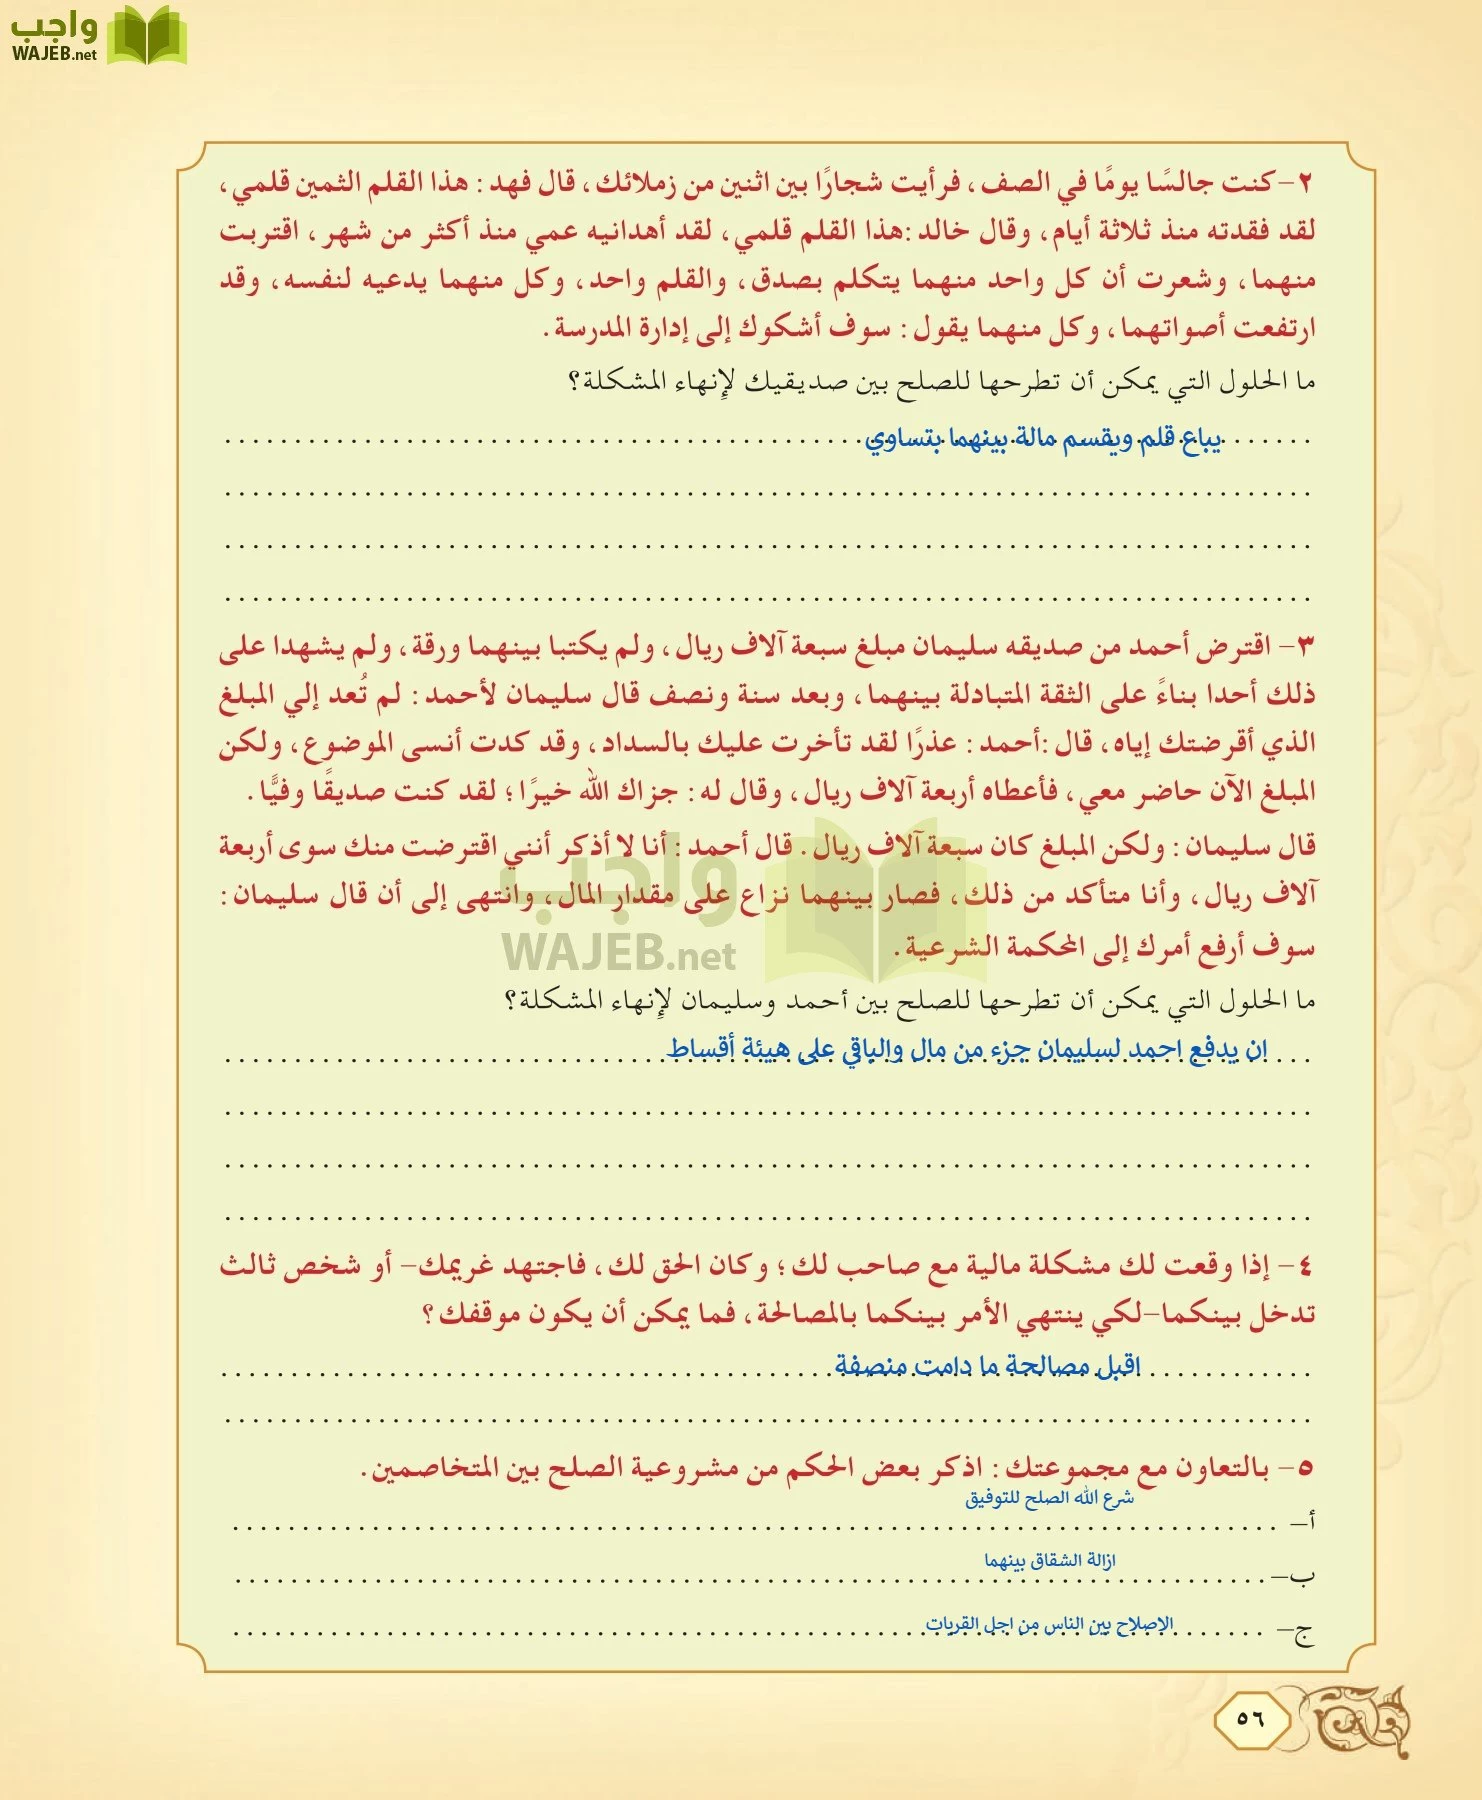 واجب
WAJEB.net
٢- كنت جالسًا يومًا في الصف، فرأيت شجارًا بين اثنين من زملائك، قال فهد: هذا القلم الثمين قلمي،
لقد فقدته منذ ثلاثة أيام، وقال خالد: هذا القلم قلمي، لقد أهدانيه عمي منذ أكثر من شهر، اقتربت
منهما، وشعرت أن كل واحد منهما يتكلم بصدق، والقلم واحد، وكل منهما يدعيه لنفسه، وقد
ارتفعت أصواتهما، وكل منهما يقول: سوف أشكوك إلى إدارة المدرسة.
ما الحلول التي يمكن أن تطرحها للصلح بين صديقيك لإِنهاء المشكلة؟
يباع قلم ويقسم مالة بينهما بتساوي
٣- اقترض أحمد من صديقه سليمان مبلغ سبعة آلاف ريال، ولم يكتبا بينهما ورقة، ولم يشهدا على
ذلك أحدا بناءً على الثقة المتبادلة بينهما، وبعد سنة ونصف قال سليمان لأحمد: لم تُعد إلي المبلغ
الذي أقرضتك إياه، قال: أحمد: عذرًا لقد تأخرت عليك بالسداد، وقد كدت أنسى الموضوع، ولكن
المبلغ الآن حاضر معي، فأعطاه أربعة آلاف ريال، وقال له: جزاك الله خيرًا؛ لقد كنت صديقًا وفيًّا.
قال سليمان: ولكن المبلغ كان سبعة آلاف ريال. قال أحمد: أنا لا أذكر أنني اقترضت منك سوى أربعة
آلاف ريال، وأنا متأكد من ذلك، فصار بينهما نزاع على مقدار المال، وانتهى إلى أن قال سليمان:
سوف أرفع أمرك إلى المحكمة الشرعية.
واجب
WAJEB.net
ما الحلول التي يمكن أن تطرحها للصلح بين أحمد وسليمان لإِنهاء المشكلة؟
ان يدفع احمد لسليمان جزء من مال والباقي على هيئة أقساط
٤- إذا وقعت لك مشكلة مالية مع صاحب لك؛ وكان الحق لك، فاجتهد غريمك- أو شخص ثالث
تدخل بينكما-لكي ينتهي الأمر بينكما بالمصالحة، فما يمكن أن يكون موقفك؟
اقبل مصالحة ما دامت منصفة
٥- بالتعاون مع مجموعتك: اذكر بعض الحكم من مشروعية الصلح بين المتخاصمين.
أ- شرع الله الصلح للتوفيق
ب- ازالة الشقاق بينهما
ج- الإصلاح بين الناس من اجل القربات
٥٦